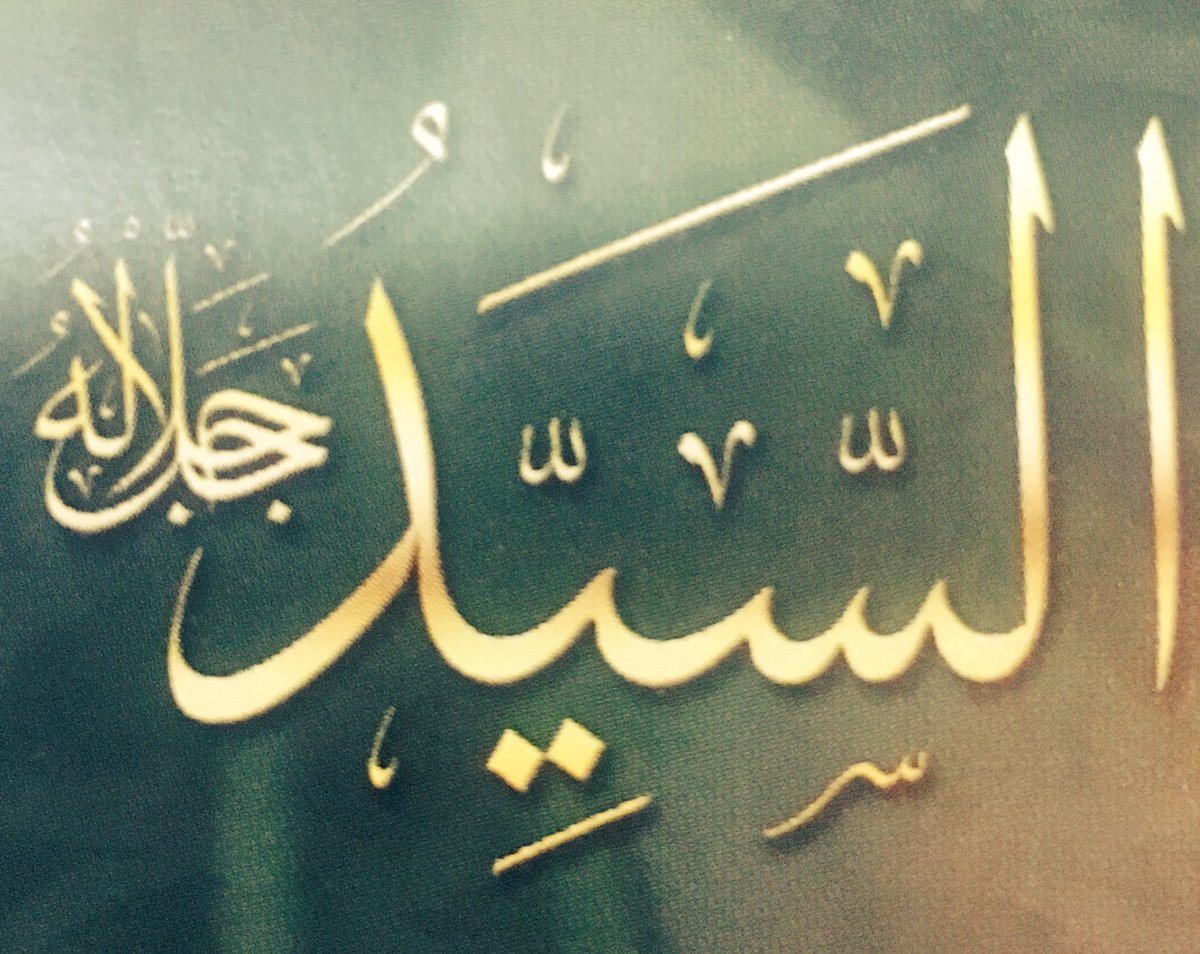 السَّيِّدُ جَلَّ جَلَالُهُ